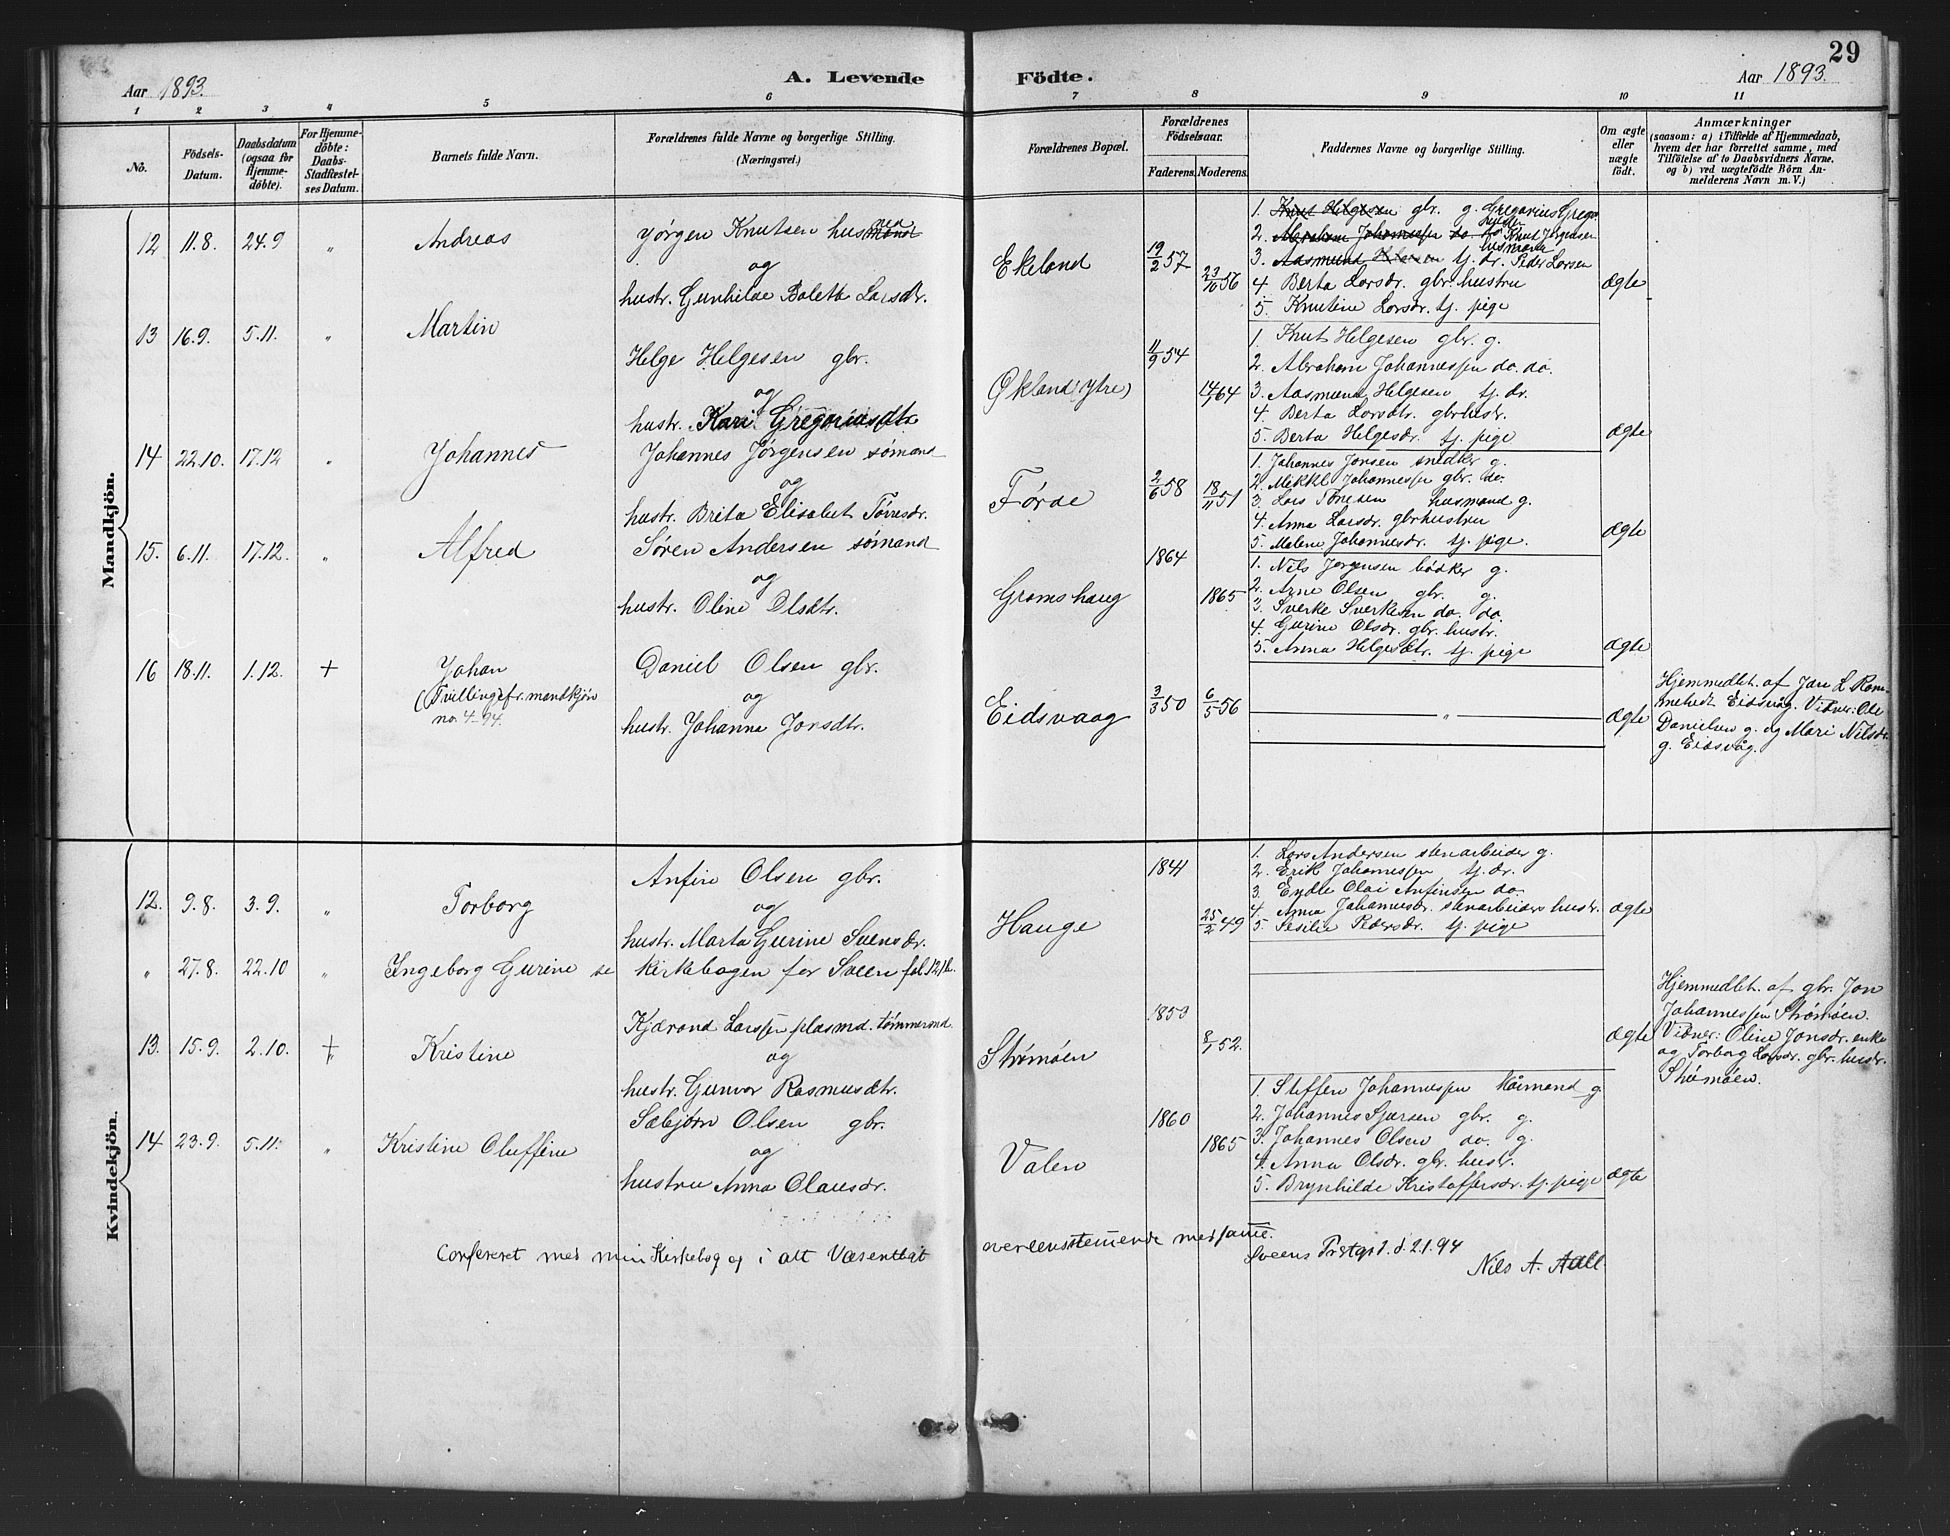 29
Aar 1893.
A. Levende Födte.
Aar 1893.
1 2 3 4 5 6 7 8 9 10 11
No.
Födsels-
Datum.
Daabsdatum
(ogsaa for
Hjemme-
döbte).
For Hjemme-
döbte:
Daabs-
Stadfæstel-
ses Datum.
Barnets fulde Navn.
Forældrenes fulde Navne og borgerlige Stilling.
(Næringsvei.)
Forældrenes Bopæl.
Forældrenes
Födselsaar.
Faderens. Moderens.
Faddernes Navne og borgerlige Stilling.
Om ægte
eller
uægte
født.
Anmærkninger
(saasom: a) i Tilfælde af Hjemmedaab,
hvem der har forrettet samme, med
Tilföielse af to Daabsvidners Navne,
og b) ved uægtefödte Börn An-
melderens Navn m. V.)
Mandkjön.
12 11.8. 24.9 " Andreas
Jørgen Knutsen husmand
og
hustr. Gunhilde Bolette Larsdr.
Ekeland
19/2 57
23/10 56
1. Knut Helgesen gbr. g. Gregorius Greg
2. Abraham Johannessen do. do Knut Jørgensen
husmand
3. Aasmund tj. dr. Peder Larsen
4 Berta Larsdr. gbr. hustru
5. Knutine Larsdr. tj. pige
ægte
13 16.9. 5.11. " Martin
Helge Helgesen gbr.
og
hustr. Kari Gregoriusdtr
Økland (ytre)
11/9 54
64
1. Knut Helgesen gbr. g.
2. Abraham Johannessen do. do.
3. Aasmund Helgesen tj. dr.
4. Berta Larsdtr. gbrhustr.
5. Berta Helgesdr. tj. pige
ægte
14 22.10. 17.12 " Johannes
Johannes Jørgensen sømand
og
hustr. Brita Elisabet Tørresdr.
Førde
2/6 58
18/11 51
1. Johannes Jonsen snedker g.
2. Mikkl Johannessen gbr. do.
3 Lars Tønesen husmand g.
4. Anna Larsdr. gbrhustru
5. Malene Johannesdr. tj. pige.
ægte
15. 6.11. 17.12. " Alfred
Søren Andersen sømand
og
hustr. Oline Olsdtr.
Gramshaug
1864
1865
1. Nils Jørgensen bødker g.
2. Arne Olsen gbr. g.
3. Sverke Sverkesen do. do.
4. Gurine Olsdr. gbr. hustr.
5. Anna Helgesdtr. tj. pige
ægte
16 18.11. 1.12. + Johan
(Tvillingefr. mandkjøn
no. 4-94.
Daniel Olsen gbr.
og
hustr. Johanna Jonsdtr.
Eidsvaag
3/3 50
6/5 56
"
ægte
Hjemmedbt. af Jon L Rom-
metvedt Eidsvåg. Vidner: Ole
Danielsen g. og Mari Nilsdr.
g. Eidsvåg.
Kvindekjön.
12. 9.8. 3.9. " Torborg
Anfin Olsen gbr.
og
hustr. Marta Gurine Svensdr.
Hauge
1841
25/2 49
1. Lars Andersen stenarbeider g.
2. Erik Johannessen tj. dr.
3 Endre Olai Anfinsen do.
4. Anna Johannesdr. stenarbeiders hustr.
5 Sesilie Pedersdr. tj. pige
ægte
" 27.8. 22.10 " Ingeborg Gurine se kirkebogen for Sveen fol 121b.
13. 15.9. 2.10. + Kristine
Kjærand Larssen plasmd. tømmermd.
og
hustr. Gunvor Rasmusdtr.
Strømøen
1853
8/1 52.
ægte
Hjemmedbt. af gbr. Jon
Johannessen Strømøen.
Vidner: Oline Jonsdr. enke
og Torborg Larsdr. gbr. hustr.
Strømøen.
14 23.9. 5.11. " Kristine Oluffine
Sæbjørn Olsen gbr.
og
hustru Anna Olausdr.
Valen
1860
1865
1. Steffen Johannessen g.
2. Johannes Sjursen gbr. g.
3. Johannes Olsen do. g.
4. Anna Olsdr. gbr. hustr.
5. Brynhilde Kristoffersdr. tj. pige
ægte
Confereret med min Kirkebog og i alt Væsentligt overensstemmende med samme.
Sveens Prstgd. d. 2.1.94
Nils A. Aall